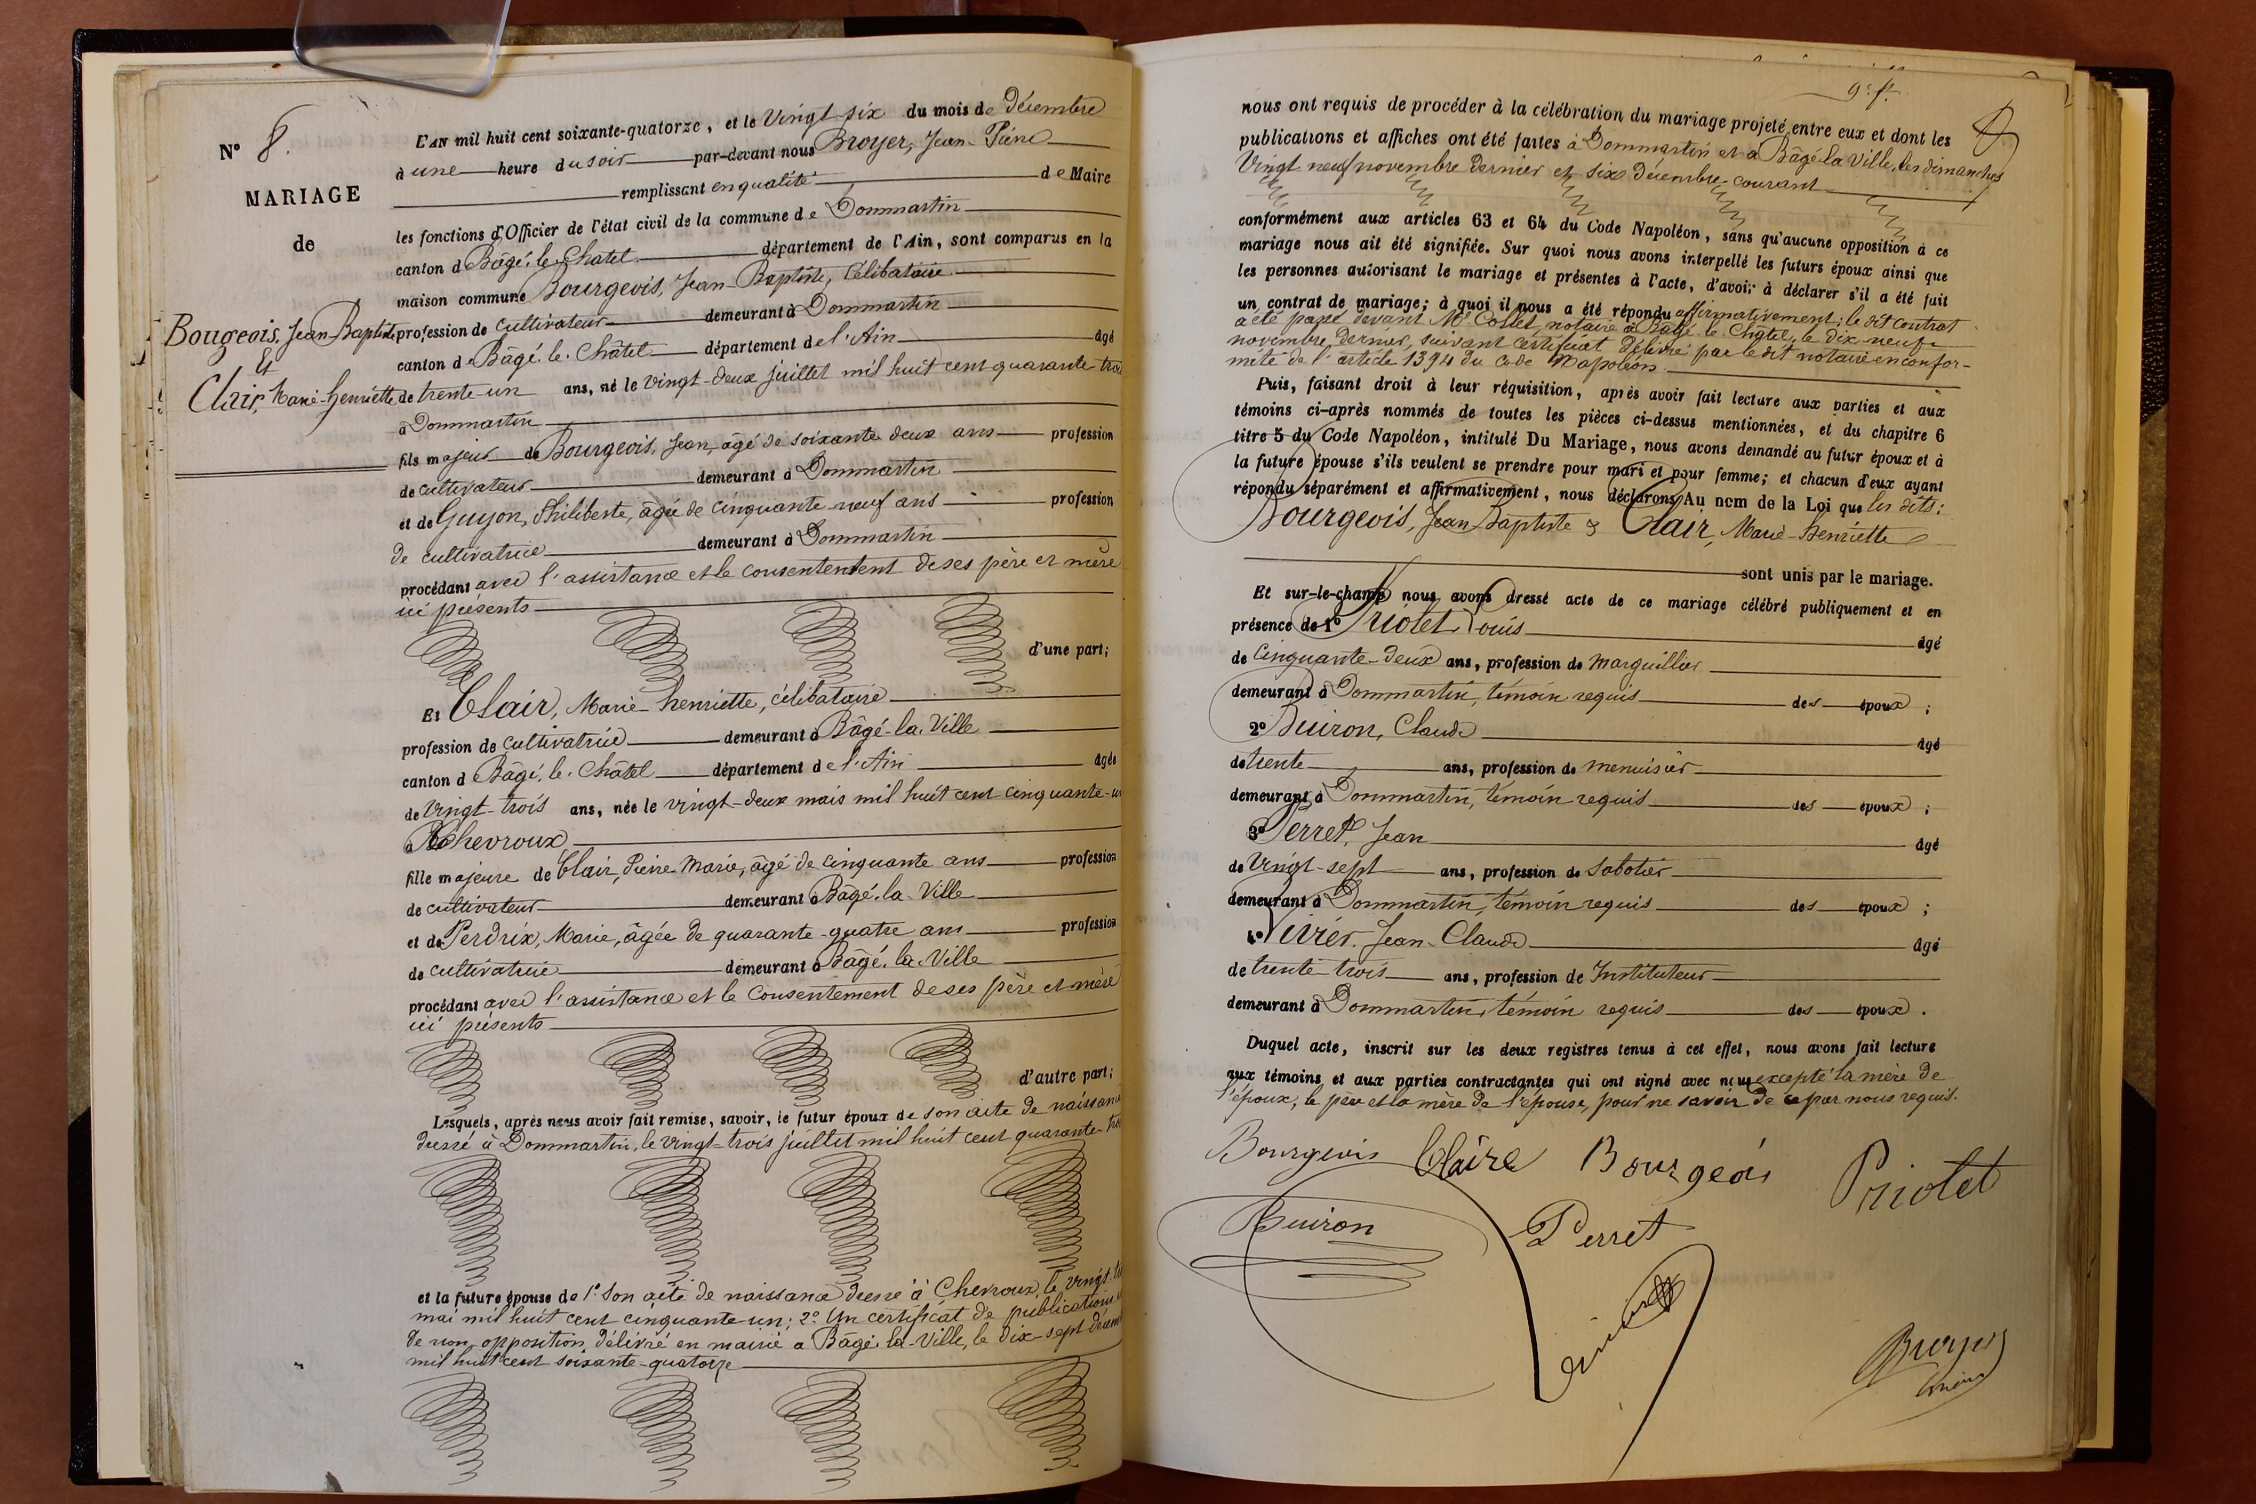 N° 8.
MARIAGE
de
Bougeois, Jean-Baptiste
Et
Clair, Marie-henriette
L'AN mil huit cent soixante-quatorze, et le Vingt six du mois de Décembre
à une heure du soir par-devant nous Broyer, Jean-Pierre
remplissant en qualité de Maire
les fonctions d'Officier de l'état civil de la commune de Dommartin
canton d Bâgé-le-Chatel département de l'Ain, sont comparus en la
maison commune Bourgeois, Jean-Baptiste, Célibataire
profession de cultivateur demeurant à Dommartin
canton de Bâgé-le-Châtel département de l'Ain âgé
de trente-un ans, né le vingt-deux juillet mil huit cent quarante trois
à Dommartin
fils majeur de Bourgeois, Jean, âgé de soixante deux ans profession
de cultivateur demeurant à Dommartin
et de Guyon, Philiberte, âgée de cinquante-neuf ans profession
de cultivatrice demeurant à Dommartin
procédant avec l'assistance et le consentement de ses père et mère
ici présents
d'une part;
Et Clair, Marie-henriette, célibataire
profession de cultivatrice demeurant à Bâgé-la-Ville
canton d Bâgé-le-Châtel département de l'Ain âgée
de Vingt-trois ans, née le vingt-deux mais mil huit cent cinquante-un
à Chevroux
fille majeure de Clair, Pierre Marie, âgé de cinquante ans profession
de cultivateur demeurant à Bâgé-la-Ville
et de Perdrix, Marie, âgée de quarante-quatre ans profession
de cultivatrice demeurant à Bâgé-la-Ville
procédant avec l'assistance et le consentement de ses père et mère
ici présents
d'autre part;
Lesquels, après nous avoir fait remise, savoir, le futur époux de son acte de naissance
dressé à Dommartin, le vingt-trois juillet mil huit cent quarante-trois
et la future épouse de 1° son acte de naissance dressé à Chevroux, le vingt-
mai mil huit cent cinquante-un; 2° Un certificat de publications
de non opposition, délivré en mairie a Bâgé-la-Ville, le dix-sept décembre
mil huit cent soixante-quatorze
9e f.
nous ont requis de procéder à la célébration du mariage projeté entre eux et dont les
publications et affiches ont été faites à Dommartin et à Bâgé-la-Ville, les dimanches
Vingt neuf novembre dernier et six décembre courant
conformément aux articles 63 et 64 du Code Napoléon, sans qu'aucune opposition à ce
mariage nous ait été signifiée. Sur quoi nous avons interpellé les futurs époux ainsi que
les personnes autorisant le mariage et présentes à l'acte, d'avoir à déclarer s'il a été fait
un contrat de mariage; à quoi il nous a été répondu affirmativement; le dit contrat
a été passé devant Me Collet, notaire à Bâgé-le-Châtel, le dix-neuf
novembre dernier, suivant certificat délivré par le dit notaire en confor-
mité de l'article 1394 du Code Napoléon.
Puis, faisant droit à leur réquisition, après avoir fait lecture aux parties et aux
témoins ci-après nommés de toutes les pièces ci-dessus mentionnées, et du chapitre 6
titre 5 du Code Napoléon, intitulé Du Mariage, nous avons demandé au futur époux et à
la future épouse s'ils veulent se prendre pour mari et pour femme; et chacun d'eux ayant
répondu séparément et affirmativement, nous déclarons Au nom de la Loi que les dits:
Bourgeois, Jean-Baptiste & Clair, Marie-henriette
sont unis par le mariage.
Et sur-le-champ nous avons dressé acte de ce mariage célébré publiquement et en
présence de 1° Priolet Louis âgé
de cinquante-deux ans, profession de marguillier
demeurant à Dommartin, témoin requis des époux;
2° Buiron, Claude âgé
de trente ans, profession de menuisier
demeurant à Dommartin, témoin requis des époux;
3° Perret, Jean âgé
de Vingt-sept ans, profession de sabotier
demeurant à Dommartin, témoin requis des époux;
4° Vivier, Jean-Claude âgé
de trente-trois ans, profession de Instituteur
demeurant à Dommartin, témoin requis des époux.
Duquel acte, inscrit sur les deux registres tenus à cet effet, nous avons fait lecture
aux témoins et aux parties contractantes qui ont signé avec nous excepté la mère de
l'époux; le père et la mère de l'épouse, pour ne savoir de ce par nous requis.
Bourgeois Claire Bourgeois Priolet
Buiron Perret
Vivier
Broyer
maire